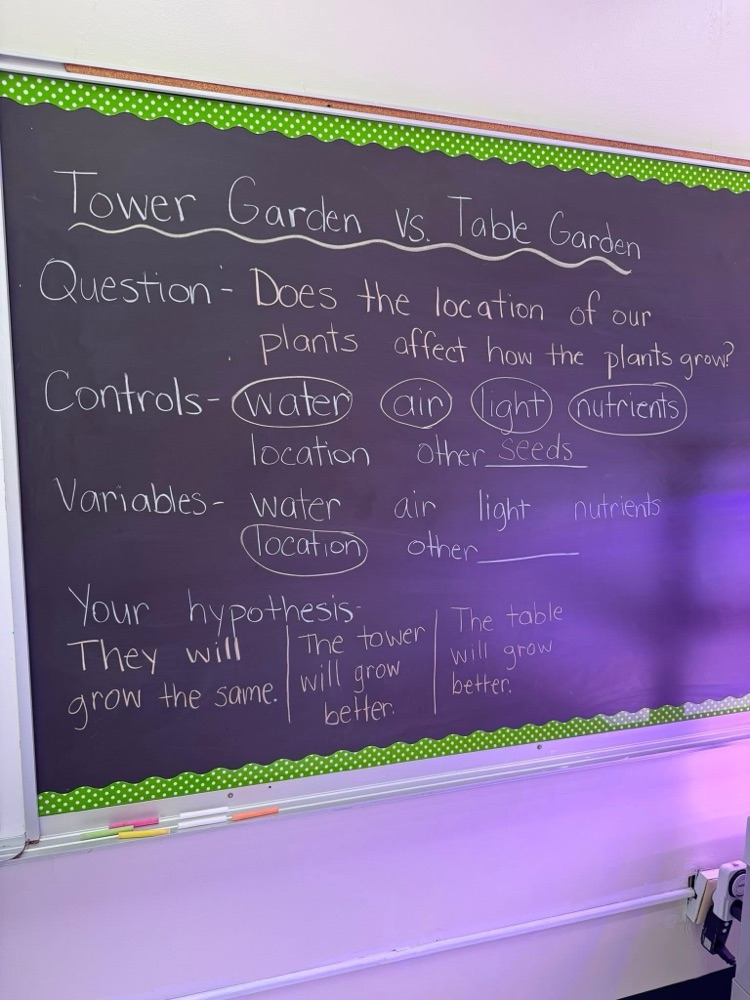 Tower Garden vs. Table Garden
Question - Does the location of our
plants affect how the plants grow?
Controls- water air light nutrients
location other seeds
Variables- water air light nutrients
location other ______
Your hypothesis-
They will
grow the same.
The tower
will grow
better.
The table
will grow
better.